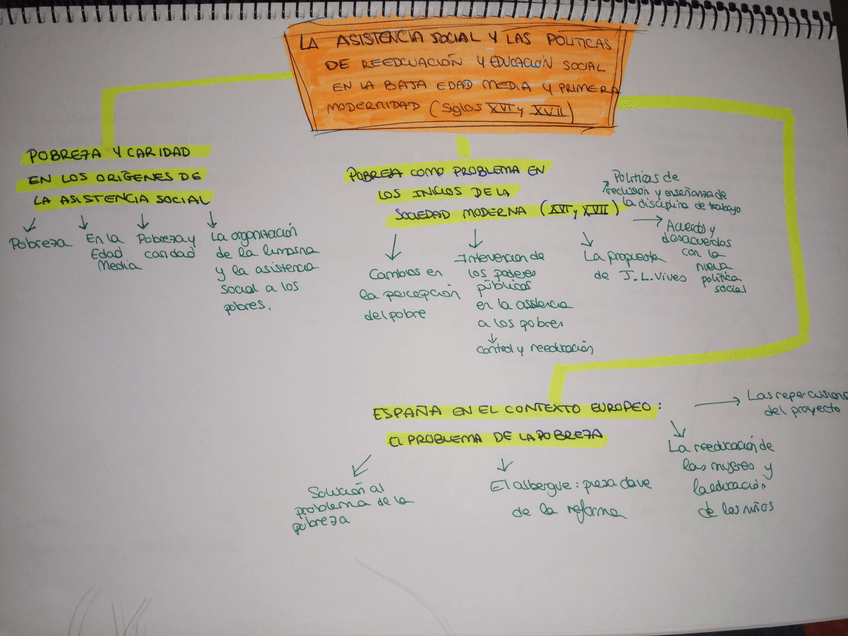 LA ASISTENCIA SOCIAL Y LAS POLÍTICAS
DE REEDUCACIÓN Y EDUCACIÓN SOCIAL
EN LA BAJA EDAD MEDIA Y PRIMERA
MODERNIDAD (Siglos XVI y XVII)
POBREZA Y CARIDAD
EN LOS ORÍGENES DE
LA ASISTENCIA SOCIAL
Pobreza
En la
Edad
Media
Pobreza y
caridad
La organización
de la limosna
y la asistencia
social a los
pobres.
POBREZA COMO PROBLEMA EN
LOS INICIOS DE LA
SOCIEDAD MODERNA (XVI y XVII)
Cambios en
la percepción
del pobre
Intervención de
los poderes
públicos
en la asistencia
a los pobres
control y reeducación
La propuesta
de J.L.Vives
Políticas de
reclusión y enseñanza de
la disciplina de trabajo
Acuerdos y
desacuerdos
con la
nueva
política
social
ESPAÑA EN EL CONTEXTO EUROPEO:
El PROBLEMA DE LA POBREZA
Solución al
problema de la
pobreza
El albergue: pieza clave
de la reforma
La reeducación de
las mujeres y
la educación
de los niños
Las repercusiones
del proyecto